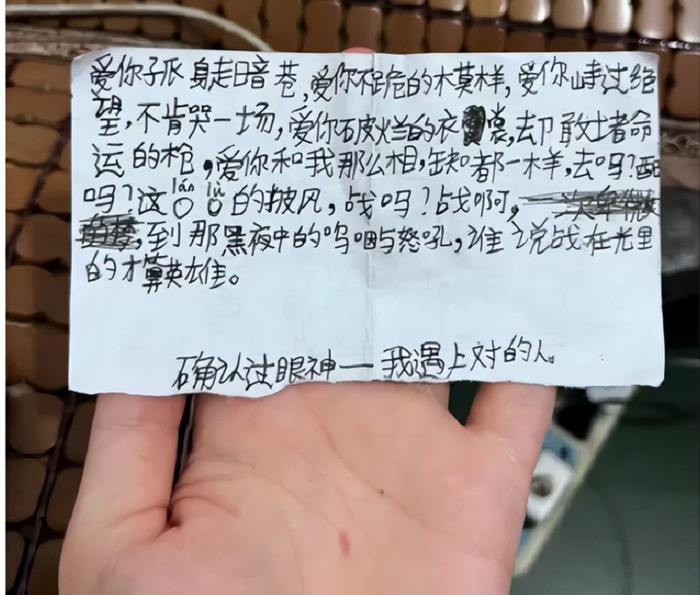 爱你孤身走暗巷,爱你不跪的模样,爱你峙过绝
望,不肯哭一场,爱你破烂的衣裳,却敢堵命
运的枪,爱你和我那么相,缺都一样,去吗?配
吗?这○(lán)○(lǚ)的披风,战吗?战啊,
到那黑夜中的呜咽与怒吼,谁说战在光里
的才算英雄。
确认过眼神——我遇上对的人。